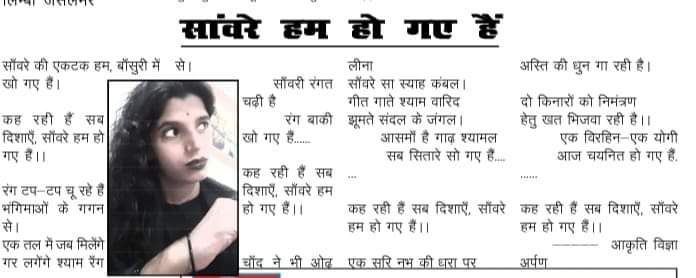 साँवरे हम हो गए हैं
साँवरे की एकटक हम, बाँसुरी में
खो गए हैं।
कह रही हैं सब
दिशाएँ, साँवरे हम हो
गए हैं।।
रंग टप-टप चू रहे हैं
भंगिमाओं के गगन
से।
एक तल में जब मिलेंगे
गर लगेंगे श्याम रंग
से।
साँवरी रंगत
चढ़ी है
रंग बाकी
खो गए हैं......
कह रही हैं सब
दिशाएँ, साँवरे हम
हो गए हैं।।
चाँद ने भी ओढ़
लीना
साँवरे सा स्याह कंबल।
गीत गाते श्याम वारिद
झूमते संदल के जंगल।
आसमाँ है गाढ़ श्यामल
सब सितारे सो गए हैं....
...
कह रही हैं सब दिशाएँ, साँवरे
हम हो गए हैं।।
एक सरि नभ की धरा पर
अस्ति की धुन गा रही है।
दो किनारों को निमंत्रण
हेतु खत भिजवा रही है।।
एक विरहिन-एक योगी
आज चयनित हो गए हैं.
......
कह रही हैं सब दिशाएँ, साँवरे
हम हो गए हैं।।
----- आकृति विज्ञा
अर्पण